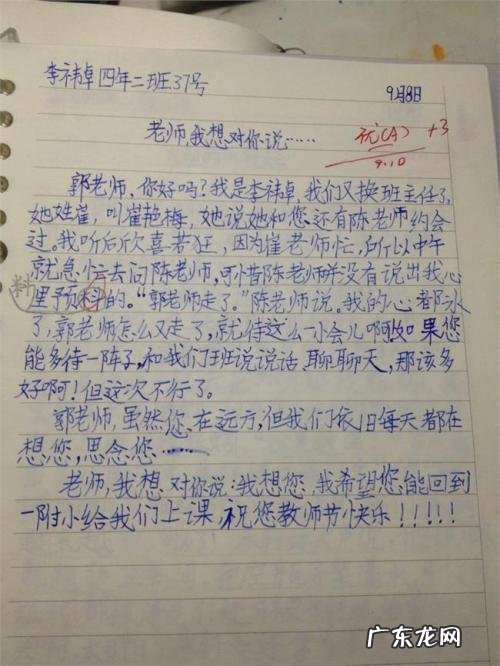 李祎卓四年二班37号
9月8日
老师,我想对你说……
优(A) +3
9.10
郭老师,你好吗?我是李祎卓,我们又换班主任了,
她姓崔,叫崔艳梅,她说她和您还有陈老师约会
过。我听后欣喜若狂,因为崔老师忙,所以中午
就急忙去问陈老师,可惜陈老师并没有说出我心
里预料的。“郭老师走了。”陈老师说。我的心都冰
料
了,郭老师怎么又走了,就待这么一小会儿啊!如果您
能多待一阵子,和我们班说说话,聊聊天,那该多
好啊!但这次不行了。
郭老师,虽然您在远方,但我们依旧每天都在
想您,思念您……
老师,我想对你说:我想您,我希望您能回到
一附小给我们上课,祝您教师节快乐!!!!!
广东龙网